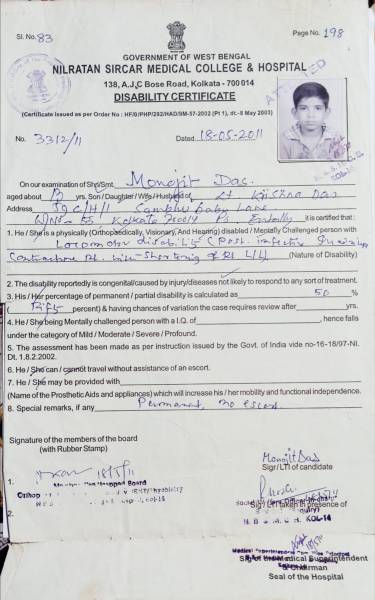 Sl. No. 83
Page No. 198
GOVERNMENT OF WEST BENGAL
NILRATAN SIRCAR MEDICAL COLLEGE & HOSPITAL
138, A.J.C Bose Road, Kolkata - 700 014
DISABILITY CERTIFICATE
(Certificate issued as per Order No : HF/0/PHP/292/HAD/9M-57-2002 (Pt 1), dt.-8 May 2003)
ATTESTED
No. 3312/11 Dated 18-05-2011
On our examination of Shri/Smt. Monojit Das.
aged about yrs. Son / Daughter / Wife / Husband of Lt Krishna Das
Address 19 C/H/1 Sambhu Babu Lane
W/No - 55 Kolkata 700014 Ps. Entally it is certified that :
1. He / She is a physically (Orthopaedically, Visionary, And Hearing) disabled / Mentally Challenged person with
Locomotor disability (Post infective
Contracture with Shortening of Rt L/L) (Nature of Disability)
2. The disability reportedly is congenital/caused by injury/diseases not likely to respond to any sort of treatment.
3. His / Her percentage of permanent / partial disability is calculated as 50 %
( Fifty percent) & having chances of variation the case requires review after yrs.
4. He / She being Mentally challenged person with a I.Q. of , hence falls
under the category of Mild / Moderate / Severe / Profound.
5. The assessment has been made as per instruction issued by the Govt. of India vide no-16-18/97-NI.
Dt. 1.8.2.2002.
6. He / She can / cannot travel without assistance of an escort.
7. He / She may be provided with
(Name of the Prosthetic Aids and appliances) which will increase his / her mobility and functional independence.
8. Special remarks, if any Permanent, no escort.
Signature of the members of the board
(with Rubber Stamp)
Monojit Das
Sigr / LTI of candidate
1. 18/5/11
Sig / LTI taken in presence of
KOL-14
2.
Sig of the Medical Superintendent
& Chairman
Seal of the Hospital